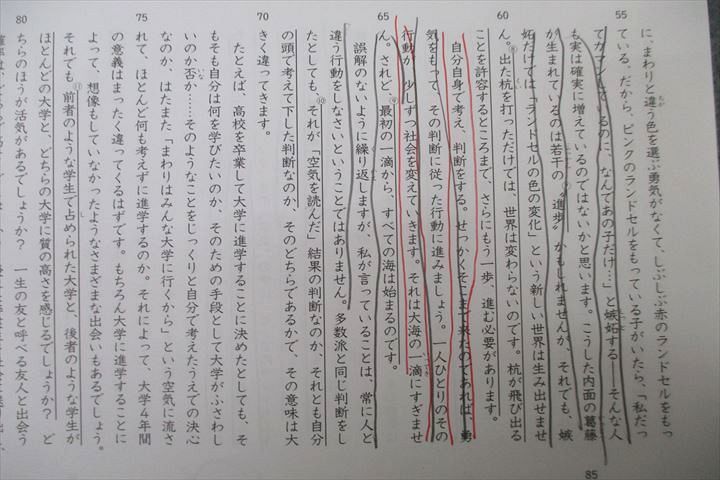 55
に、まわりと違う色を選ぶ勇気がなくて、しぶしぶ赤のランドセルをもっ
ている。だから、ピンクのランドセルをもっている子がいたら、「私だっ
てガマンしているのに、なんであの子だけ…」と嫉妬する――そんな人
も実は確実に増えているのではないかと思います。こうした内面の葛藤
が生まれているのは若干の〝進歩〟かもしれませんが、それでも、嫉
妬だけでは「ランドセルの色の変化」という新しい世界は生み出せませ
60
ん。⑧出た杭を打っただけでは、世界は変わらないのです。杭が飛び出る
ことを許容するところまで、さらにもう一歩、進む必要があります。
自分自身で考え、判断をする。せっかくそこまで来たのであれば、勇
気をもって、その判断に従った行動に進みましょう。一人ひとりのその
行動が、少しずつ社会を変えていきます。それは大海の一滴にすぎませ
65
ん。されど、⑨最初の一滴から、すべての海は始まるのです。
誤解のないように繰り返しますが、私が言っていることは、常に人と
違う行動をしなさいということではありません。多数派と同じ判断をし
たとしても、⑩それが「空気を読んだ」結果の判断なのか、それとも自分
の頭で考えて下した判断なのか、そのどちらであるかで、その意味は大
70
きく違ってきます。
たとえば、高校を卒業して大学に進学することに決めたとしても、そ
もそも自分は何を学びたいのか、そのための手段として大学がふさわし
いのか否か……そのようなことをじっくりと自分で考えたうえでの決心
なのか、はたまた「まわりはみんな大学に行くから」という空気に流さ
75
れて、ほとんど何も考えずに進学するのか。それによって、大学４年間
の意義はまったく違ってくるはずです。もちろん大学に進学することに
よって、想像もしていなかったようなさまざまな出会いもあるでしょう。
それでも、⑪前者のような学生で占められた大学と、後者のような学生が
ほとんどの大学と、どちらの大学に質の高さを感じるでしょうか？　ど
80
ちらのほうが活気があるでしょうか？　一生の友と呼べる友人と出会う
85